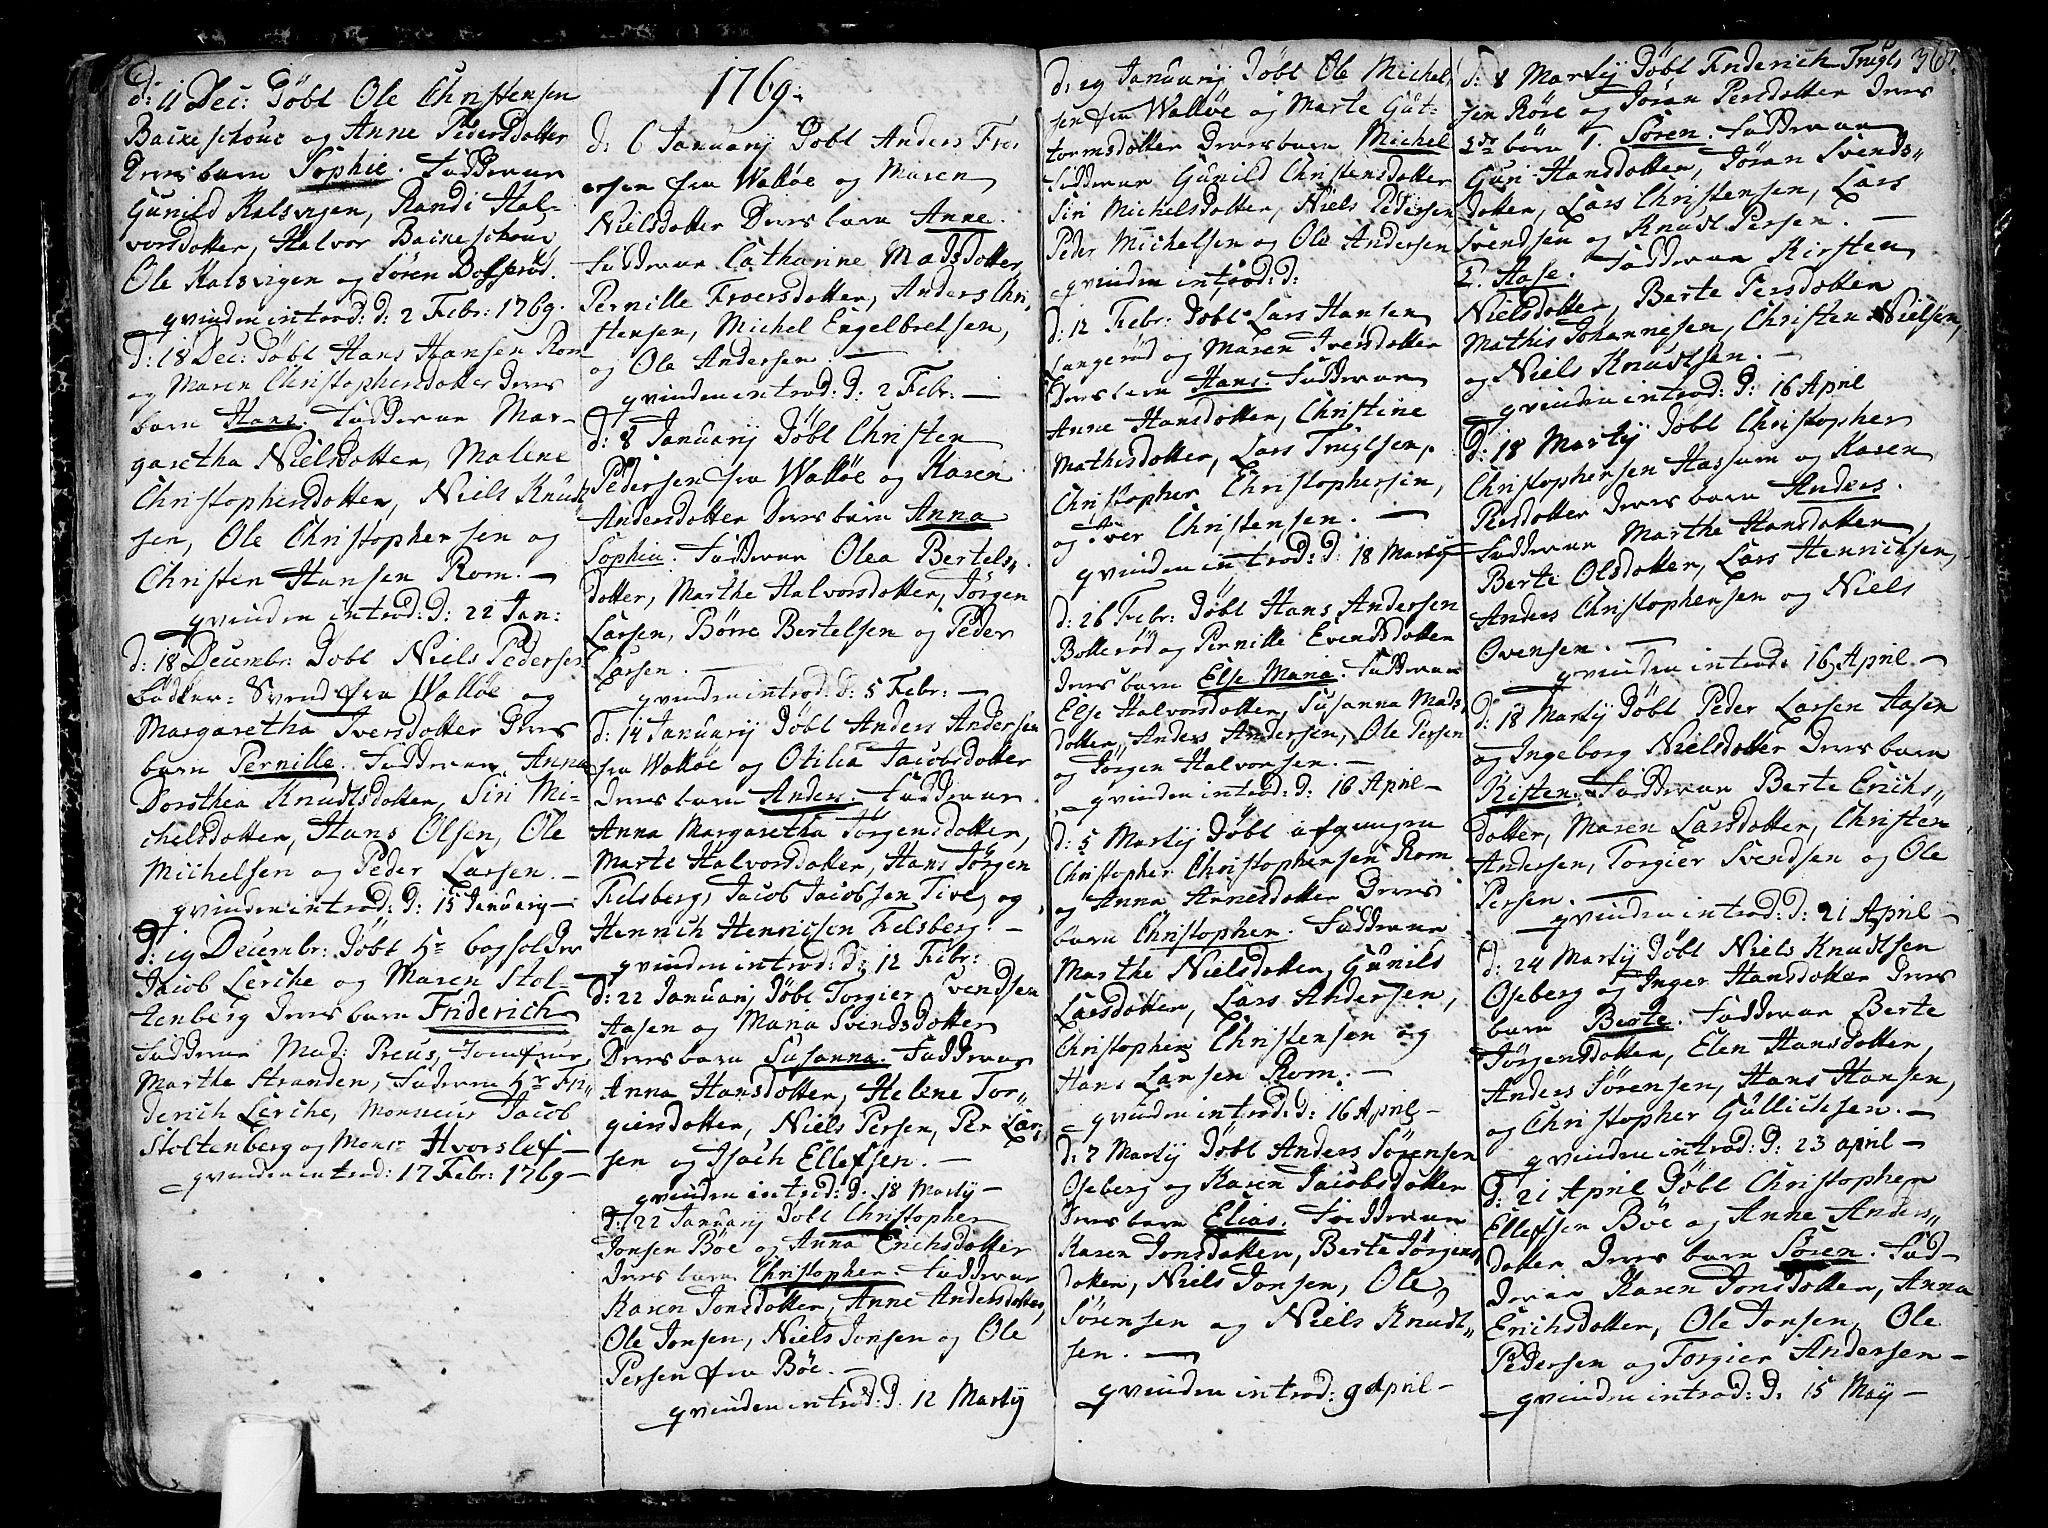 d: 11 Dec: Döbt Ole Christensen
Backeschouc og Anne Pedersdotter
Deres barn Sophie. Faddere var
Gunild Kalsvigen, Randi Hal-
vorsdotter, Halvor Backeschouc,
Ole Kalsvigen og Sören Bosserod.
qvinden introd: d: 2 Febr: 1769.
d: 18 Dec: Döbt Hans Hansen Rom
og Maren Christophersdotter Deres
barn Hans. Faddere var Mar-
garetha Nielsdotter, Malene
Christophersdotter, Niels Knud-
sen, Ole Christophersen og
Christen Hansen Rom. —
qvinden introd: d: 22 Jan:
d: 18 Decembr: Döbt Niels Pedersen
Bödker-Svend fra Walløe og
Margaretha Iversdotter Deres
barn Pernille. Faddere var Anna
Dorothea Knudtsdotter, Siri Mi-
chelsdotter, Hans Olsen, Ole
Michelsen og Peder Larsen. —
qvinden introd: d: 15 January —
d: 19 Decembr: Döbt Hr bogholder
Jacob Lerche og Maren Stol-
tenberg Deres barn Friderich
Faddere var Mad: Preus, Jomfrue
Marthe Stranden, Faderen Hr Fri-
derich Lerche, Monsieur Jacob
Stoltenberg og Monsr Hvorslef —
qvinden introd: 17 Febr: 1769 —
1769.
d: 6 January Döbt Anders Fro-
ersen fra Walløe og Maren
Nielsdotter Deres barn Anne.
Faddere var Catharine Madsdotter,
Pernille Froersdotter, Anders Chri-
stensen, Michel Engelbretsen,
og Ole Andersen. —
qvinden introd: d: 2 Febr: —
d: 8 January Döbt Christen
Pedersen fra Walløe og Karen
Andersdotter Deres barn Anna
Sophia. Faddere var Olea Bertels-
dotter, Marthe Halvorsdotter, Jörgen
Larsen, Börre Bertelsen og Peder
Larsen. —
qvinden introd: d: 5 Febr: —
d: 14 January Döbt Anders Andersen
fra Walløe og Otilia Jacobsdotter
Deres barn Anders. Faddere var
Anna Margaretha Jörgensdotter,
Marte Halvorsdotter, Hans Jörgen
Felsberg, Jacob Jacobsen Tive, og
Henrich Henricson Felsberg. —
qvinden introd: d: 12 Febr:
d: 22 January Döbt Torgier Svendsen
Aasen og Maria Svendsdotter
Deres barn Susanna. Faddere var
Anna Hansdotter, Helene Tor-
giersdotter, Niels Persen, Per Lar-
sen og Isach Ellefsen. —
qvinden introd: d. 18 Marty —
d: 22 January Döbt Christopher
Jonsen Böe og Anna Erichsdotter
Deres barn Christopher. Faddere var
Karen Jonsdotter, Anne Andersdotter,
Ole Jonsen, Niels Jonsen og Ole
Persen fra Böe. —
qvinden introd: d. 12 Marty
d: 29 January Döbt Ole Michel-
sen fra Walløe og Marte Gut-
tormsdotter Deres barn Michel
Faddere var Gunild Christensdotter
Siri Michelsdotter, Niels Pedersen
Peder Michelsen og Ole Andersen
qvinden introd: d:
d: 12 Febr: Döbt Lars Hansen
Langeröd og Maren Iversdotter
Deres barn Hans. Faddere var
Anne Hansdotter, Christine
Mathisdotter, Lars Trugelsen,
Christopher Christophersen,
og Iver Christensen. —
qvinden introd: d: 18 Marty
d: 26 Febr: Döbt Hans Andersen
Bolleröd og Pernille Evendsdotter
Deres barn Else Maria. Faddere var
Else Halvorsdotter, Susanna Mads-
dotter, Anders Andersen, Ole Persen
og Jörgen Halvorsen. —
qvinden introd: d: 16 April —
d: 5 Marty Döbt afgangne
Christopher Christophersen Rom
og Anna Arnesdotter Deres
barn Christopher. Faddere var
Marthe Nielsdotter, Gunild
Larsdotter, Lars Andersen,
Christopher Christensen og
Hans Larsen Rom. —
qvinden introd: d: 16 April —
d: 7 Marty Döbt Anders Sörensen
Oseberg og Karen Jacobsdotter
Deres barn Elias. Faddere var
Karen Jonsdotter, Berte Jörgens-
dotter, Niels Jonsen, Ole
Sörensen og Niels Knudt-
sen. —
qvinden introd: 9 April —
367.
d: 8 Marty Döbt Friderich Trugl-
sen Röse og Jöran Persdotter Deres
2de börn 1. Sören. Faddere var
Guri Hansdotter, Jöran Svends-
dotter, Lars Christensen, Lars
Svendsen og Knudt Persen. —
2. Aase. Faddere var Kirsten
Nielsdotter, Berte Persdotter
Mathis Johannesen, Christen Nielsen,
og Niels Knudtsen. —
qvinden introd: d: 16 April
d: 18 Marty Döbt Christopher
Christophersen Hassum og Karen
Persdotter Deres barn Anders.
Faddere var Marthe Hansdotter,
Berte Olsdotter, Lars Henrichsen,
Anders Christophersen og Niels
Ovensen. —
qvinden introd: 16 April —
d: 18 Marty Döbt Peder Larsen Aasen
og Ingeborg Nielsdotter Deres barn
Kisten. Faddere var Berte Erichs-
dotter, Maren Larsdotter, Christen
Andersen, Torgier Svendsen og Ole
Persen. —
qvinden introd: d: 21 April —
d: 24 Marty Döbt Niels Knudtsen
Oseberg og Inger Hansdotter Deres
barn Berte. Faddere var Berte
Jörgensdotter, Elen Hansdotter,
Anders Sörensen, Hans Hansen,
og Christopher Gullichsen. —
qvinden introd: d: 23 april —
d: 21 April Döbt Christopher
Ellefsen Böe og Anne Anders-
dotter Deres barn Sören. Fad-
dere var Karen Jonsdotter, Anna
Erichsdotter, Ole Jonsen, Ole
Pedersen og Torgier Andersen —
qvinden introd: d. 15 May —